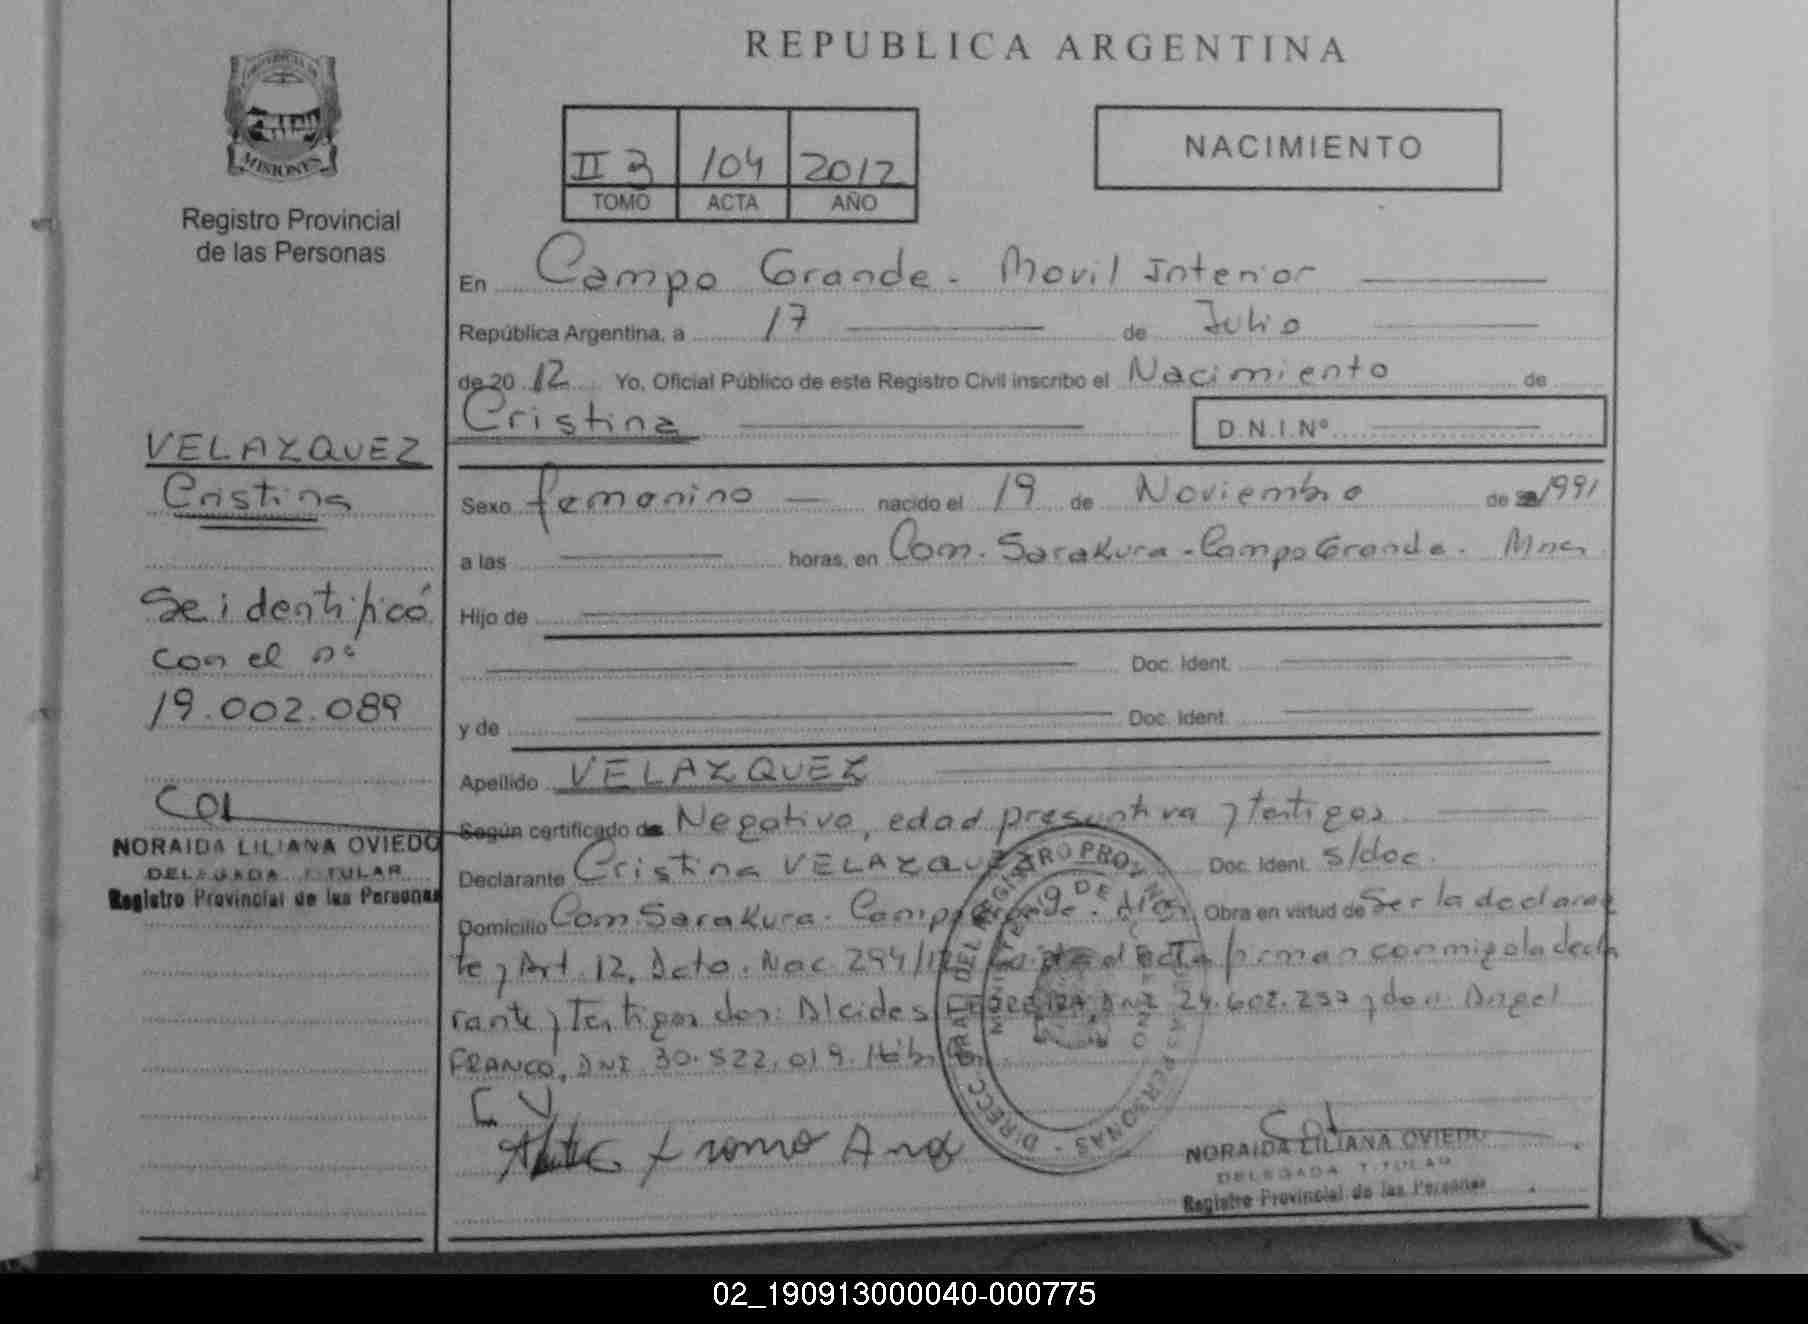 REPUBLICA ARGENTINA
PROVINCIA DE
MISIONES
Registro Provincial
de las Personas
II 3 104 2012
TOMO ACTA AÑO
NACIMIENTO
En Campo Grande - Movil Interior
República Argentina, a 17 de Julio
de 20 12 Yo, Oficial Público de este Registro Civil inscribo el Nacimiento de
Cristina D.N.I.Nº
VELAZQUEZ
Cristina
Se identificó
con el nº
19.002.089
NORAIDA LILIANA OVIEDO
DELEGADA TITULAR
Registro Provincial de las Personas
Sexo femenino nacido el 19 de Noviembre de 1991
a las horas, en Com. Sarakura - Campo Grande. Mnes
Hijo de
Doc. Ident.
y de Doc. Ident.
Apellido VELAZQUEZ
Según certificado de Negativo, edad presuntiva y testigos
Declarante Cristina VELAZQUEZ Doc. Ident. s/doc.
Domicilio Com. Sarakura. Campo Grande. Obra en virtud de Ser la declaran
te y Art. 12, Acta. Nac. 294/ firman conmigo la decla
rante y testigos don: Alcides FERREIRA, DNI 24.602.237 y don: Angel
FRANCO, DNI 30.522.019.
C V
NORAIDA LILIANA OVIEDO
DELEGADA TITULAR
Registro Provincial de las Personas
02_190913000040-000775